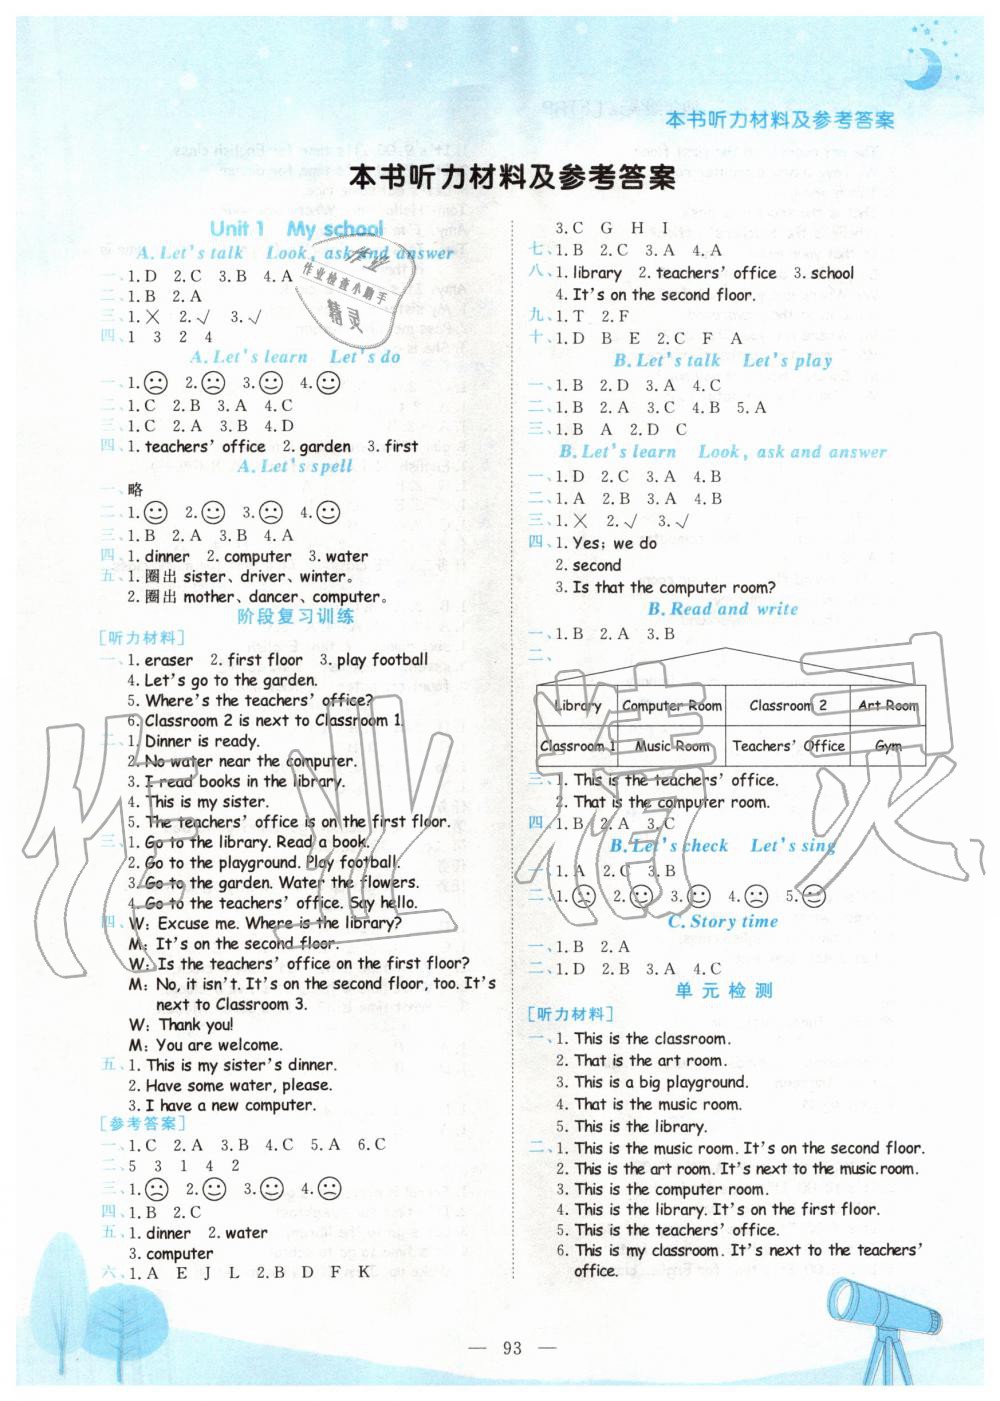 本书听力材料及参考答案
本书听力材料及参考答案
Unit 1 My school
A. Let's talk Look, ask and answer
一、1. D 2. C 3. B 4. A
二、1. B 2. A
三、1. × 2. √ 3. √
四、1 3 2 4
A. Let's learn Let's do
一、1.☹ 2.☹ 3.☺ 4.☺
二、1. C 2. B 3. A 4. C
三、1. C 2. A 3. B 4. D
四、1. teachers' office 2. garden 3. first
A. Let's spell
一、略
二、1.☺ 2.☺ 3.☹ 4.☺
三、1. B 2. A 3. B 4. A
四、1. dinner 2. computer 3. water
五、1. 圈出 sister、driver、winter。
2. 圈出 mother、dancer、computer。
阶段复习训练
[听力材料]
一、1. eraser 2. first floor 3. play football
4. Let's go to the garden.
5. Where's the teachers' office?
6. Classroom 2 is next to Classroom 1.
二、1. Dinner is ready.
2. No water near the computer.
3. I read books in the library.
4. This is my sister.
5. The teachers' office is on the first floor.
三、1. Go to the library. Read a book.
2. Go to the playground. Play football.
3. Go to the garden. Water the flowers.
4. Go to the teachers' office. Say hello.
四、W: Excuse me. Where is the library?
M: It's on the second floor.
W: Is the teachers' office on the first floor?
M: No, it isn't. It's on the second floor, too. It's
next to Classroom 3.
W: Thank you!
M: You are welcome.
五、1. This is my sister's dinner.
2. Have some water, please.
3. I have a new computer.
[参考答案]
一、1. C 2. A 3. B 4. C 5. A 6. C
二、5 3 1 4 2
三、1.☹ 2.☺ 3.☺ 4.☹
四、1. B 2. C
五、1. dinner 2. water
3. computer
六、1. A E J L 2. B D F K
3. C G H I
七、1. B 2. C 3. A 4. A
八、1. library 2. teachers' office 3. school
4. It's on the second floor.
九、1. T 2. F
十、1. D B E 2. C F A
B. Let's talk Let's play
一、1. B 2. D 3. A 4. C
二、1. B 2. A 3. C 4. B 5. A
三、1. B A 2. D C
B. Let's learn Look, ask and answer
一、1. B 2. C 3. A 4. B
二、1. A 2. B 3. A 4. B
三、1. × 2. √ 3. √
四、1. Yes; we do
2. second
3. Is that the computer room?
B. Read and write
一、1. B 2. A 3. B
二、
Library Computer Room Classroom 2 Art Room
Classroom 1 Music Room Teachers' Office Gym
三、1. This is the teachers' office.
2. That is the computer room.
四、1. B 2. A 3. C
B. Let's check Let's sing
一、1. A 2. C 3. B
二、1.☹ 2.☺ 3.☺ 4.☹ 5.☺
C. Story time
一、1. B 2. A
二、1. D 2. B 3. A 4. C
单元检测
[听力材料]
一、1. This is the classroom.
2. That is the art room.
3. This is a big playground.
4. That is the music room.
5. This is the library.
二、1. This is the music room. It's on the second floor.
2. This is the art room. It's next to the music room.
3. This is the computer room.
4. This is the library. It's on the first floor.
5. This is the teachers' office.
6. This is my classroom. It's next to the teachers'
office.
— 93 —
作业
作业检查小助手
精灵
作业精灵